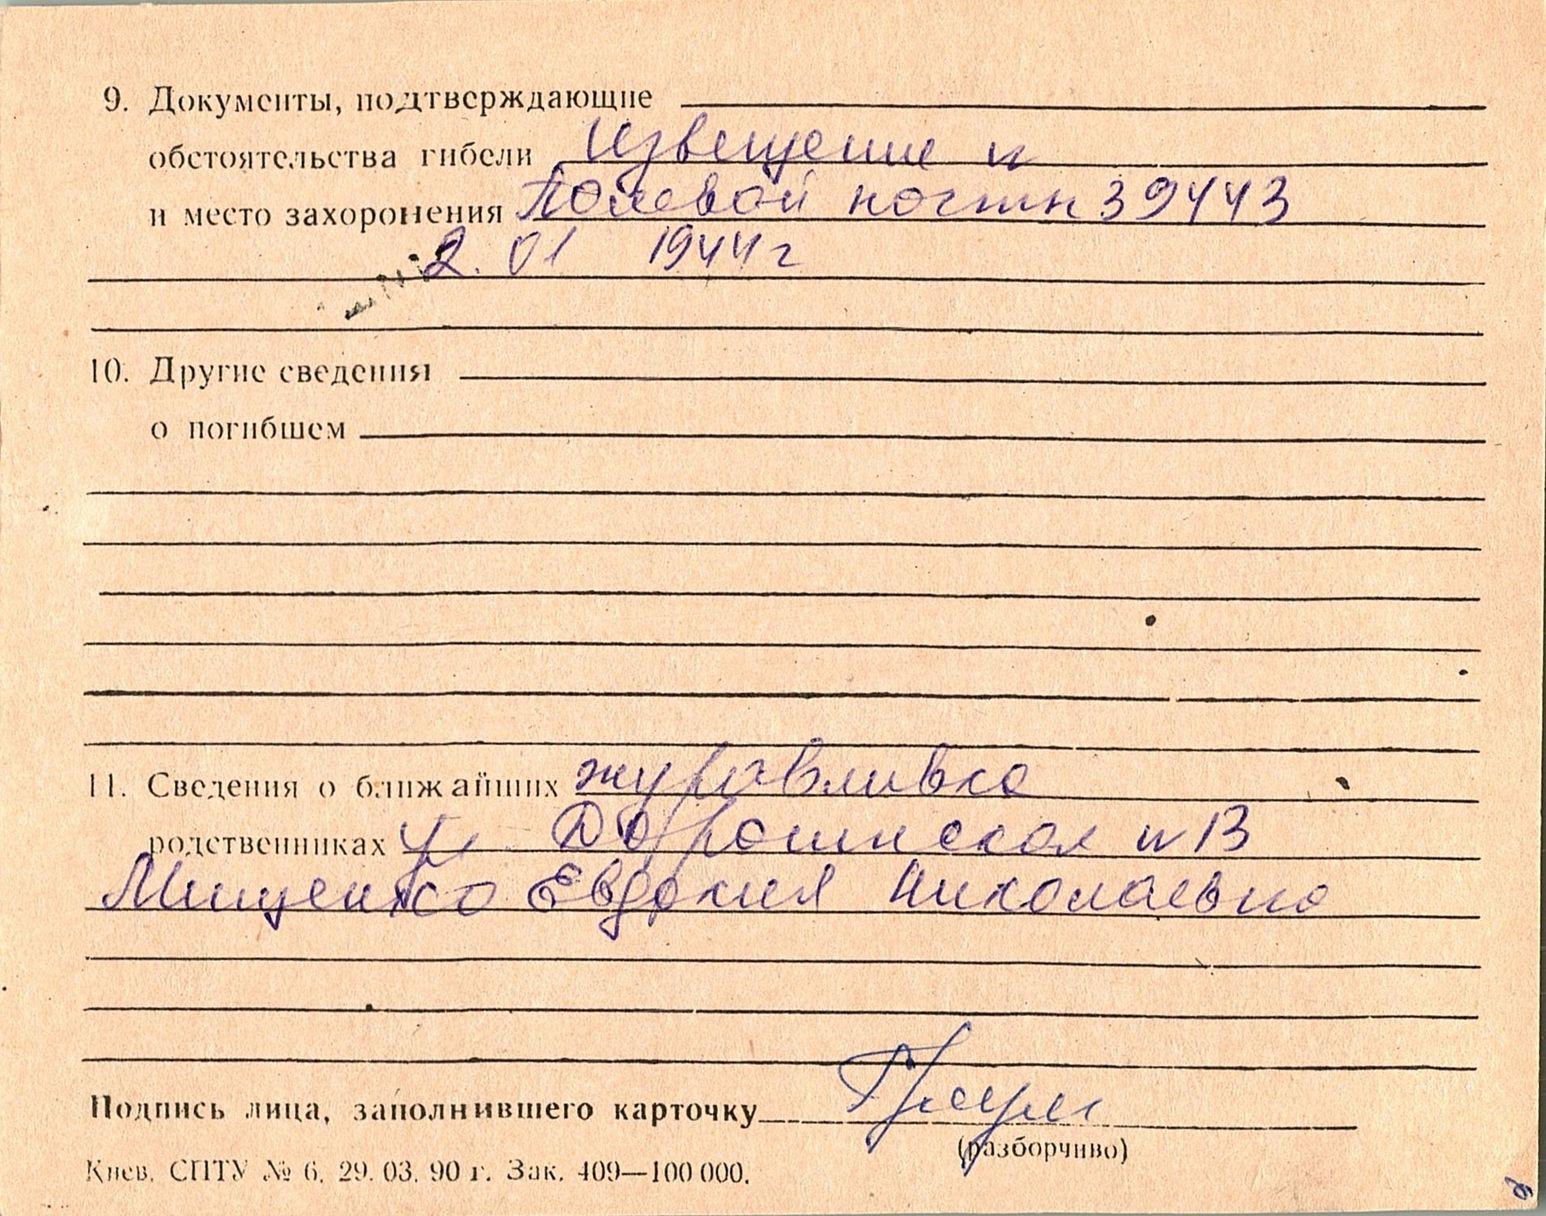 9. Документы, подтверждающие
обстоятельства гибели Извещение и
и место захоронения Полевой почты 39443
2. 01 1944 г
10. Другие сведения
о погибшем
11. Сведения о ближайших журавливка
родственниках ул Дорошинская N 13
Мищенко Евдокия Николаевна
Подпись лица, заполнившего карточку
(разборчиво)
Киев. СПТУ № 6. 29. 03. 90 г. Зак. 409—100 000.